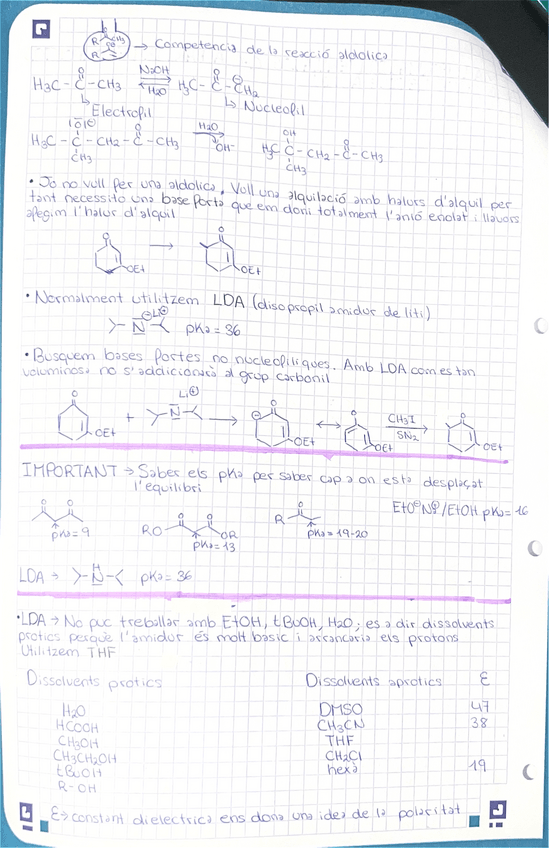 R CH3
R
→ Competencia de la reacció aldolica
H3C - C - CH3 NaOH H2O H3C - C - CH2
O O ⊖
↳ Electrofil ↳ Nucleofil
|O|⊖ O H2O OH O
H3C - C - CH2 - C - CH3 OH- H3C - C - CH2 - C - CH3
CH3 CH3
• Jo no vull fer una aldolica. Vull una alquilació amb halurs d'alquil per
tant necessito una base forta que em doni totalment l'anió enolat i llavors
afegim l'halur d'alquil
O → O
OEt OEt
• Normalment utilitzem LDA (disopropil amidur de liti)
⊖ Li⊕
N pKa = 36
• Busquem bases fortes no nucleofiliques. Amb LDA com es tan
voluminosa no s'addicionarà al grup carbonil
O Li⊕ O O O
+ N → ⊖ ↔ CH3I
OEt OEt OEt SN2 OEt
IMPORTANT → Saber els pKa per saber cap a on esta desplaçat
l'equilibri
O O O O O EtO⊖Na⊕/EtOH pKa = 16
pKa = 9 RO OR R
pKa = 13 pKa = 19-20
H
LDA → N pKa = 36
• LDA → No puc treballar amb EtOH, tBuOH, H2O; es a dir dissolvents
protics perquè l'amidur és molt basic i arrancaria els protons
Utilitzem THF
Dissolvents protics Dissolvents aprotics ε
H2O DMSO 47
HCOOH CH3CN 38
CH3OH THF
CH3CH2OH CH2Cl
tBuOH hexà 19
R-OH
ε → constant dielectrica ens dona una idea de la polaritat